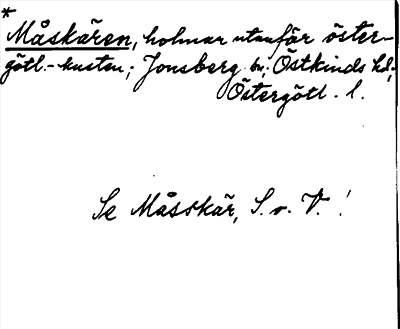 *
Måskären, holmar utanför öster-
götl.-kusten; Jonsberg sn; Östkinds hd;
Östergötl. l.
Se Måsskär, S. o. V. !